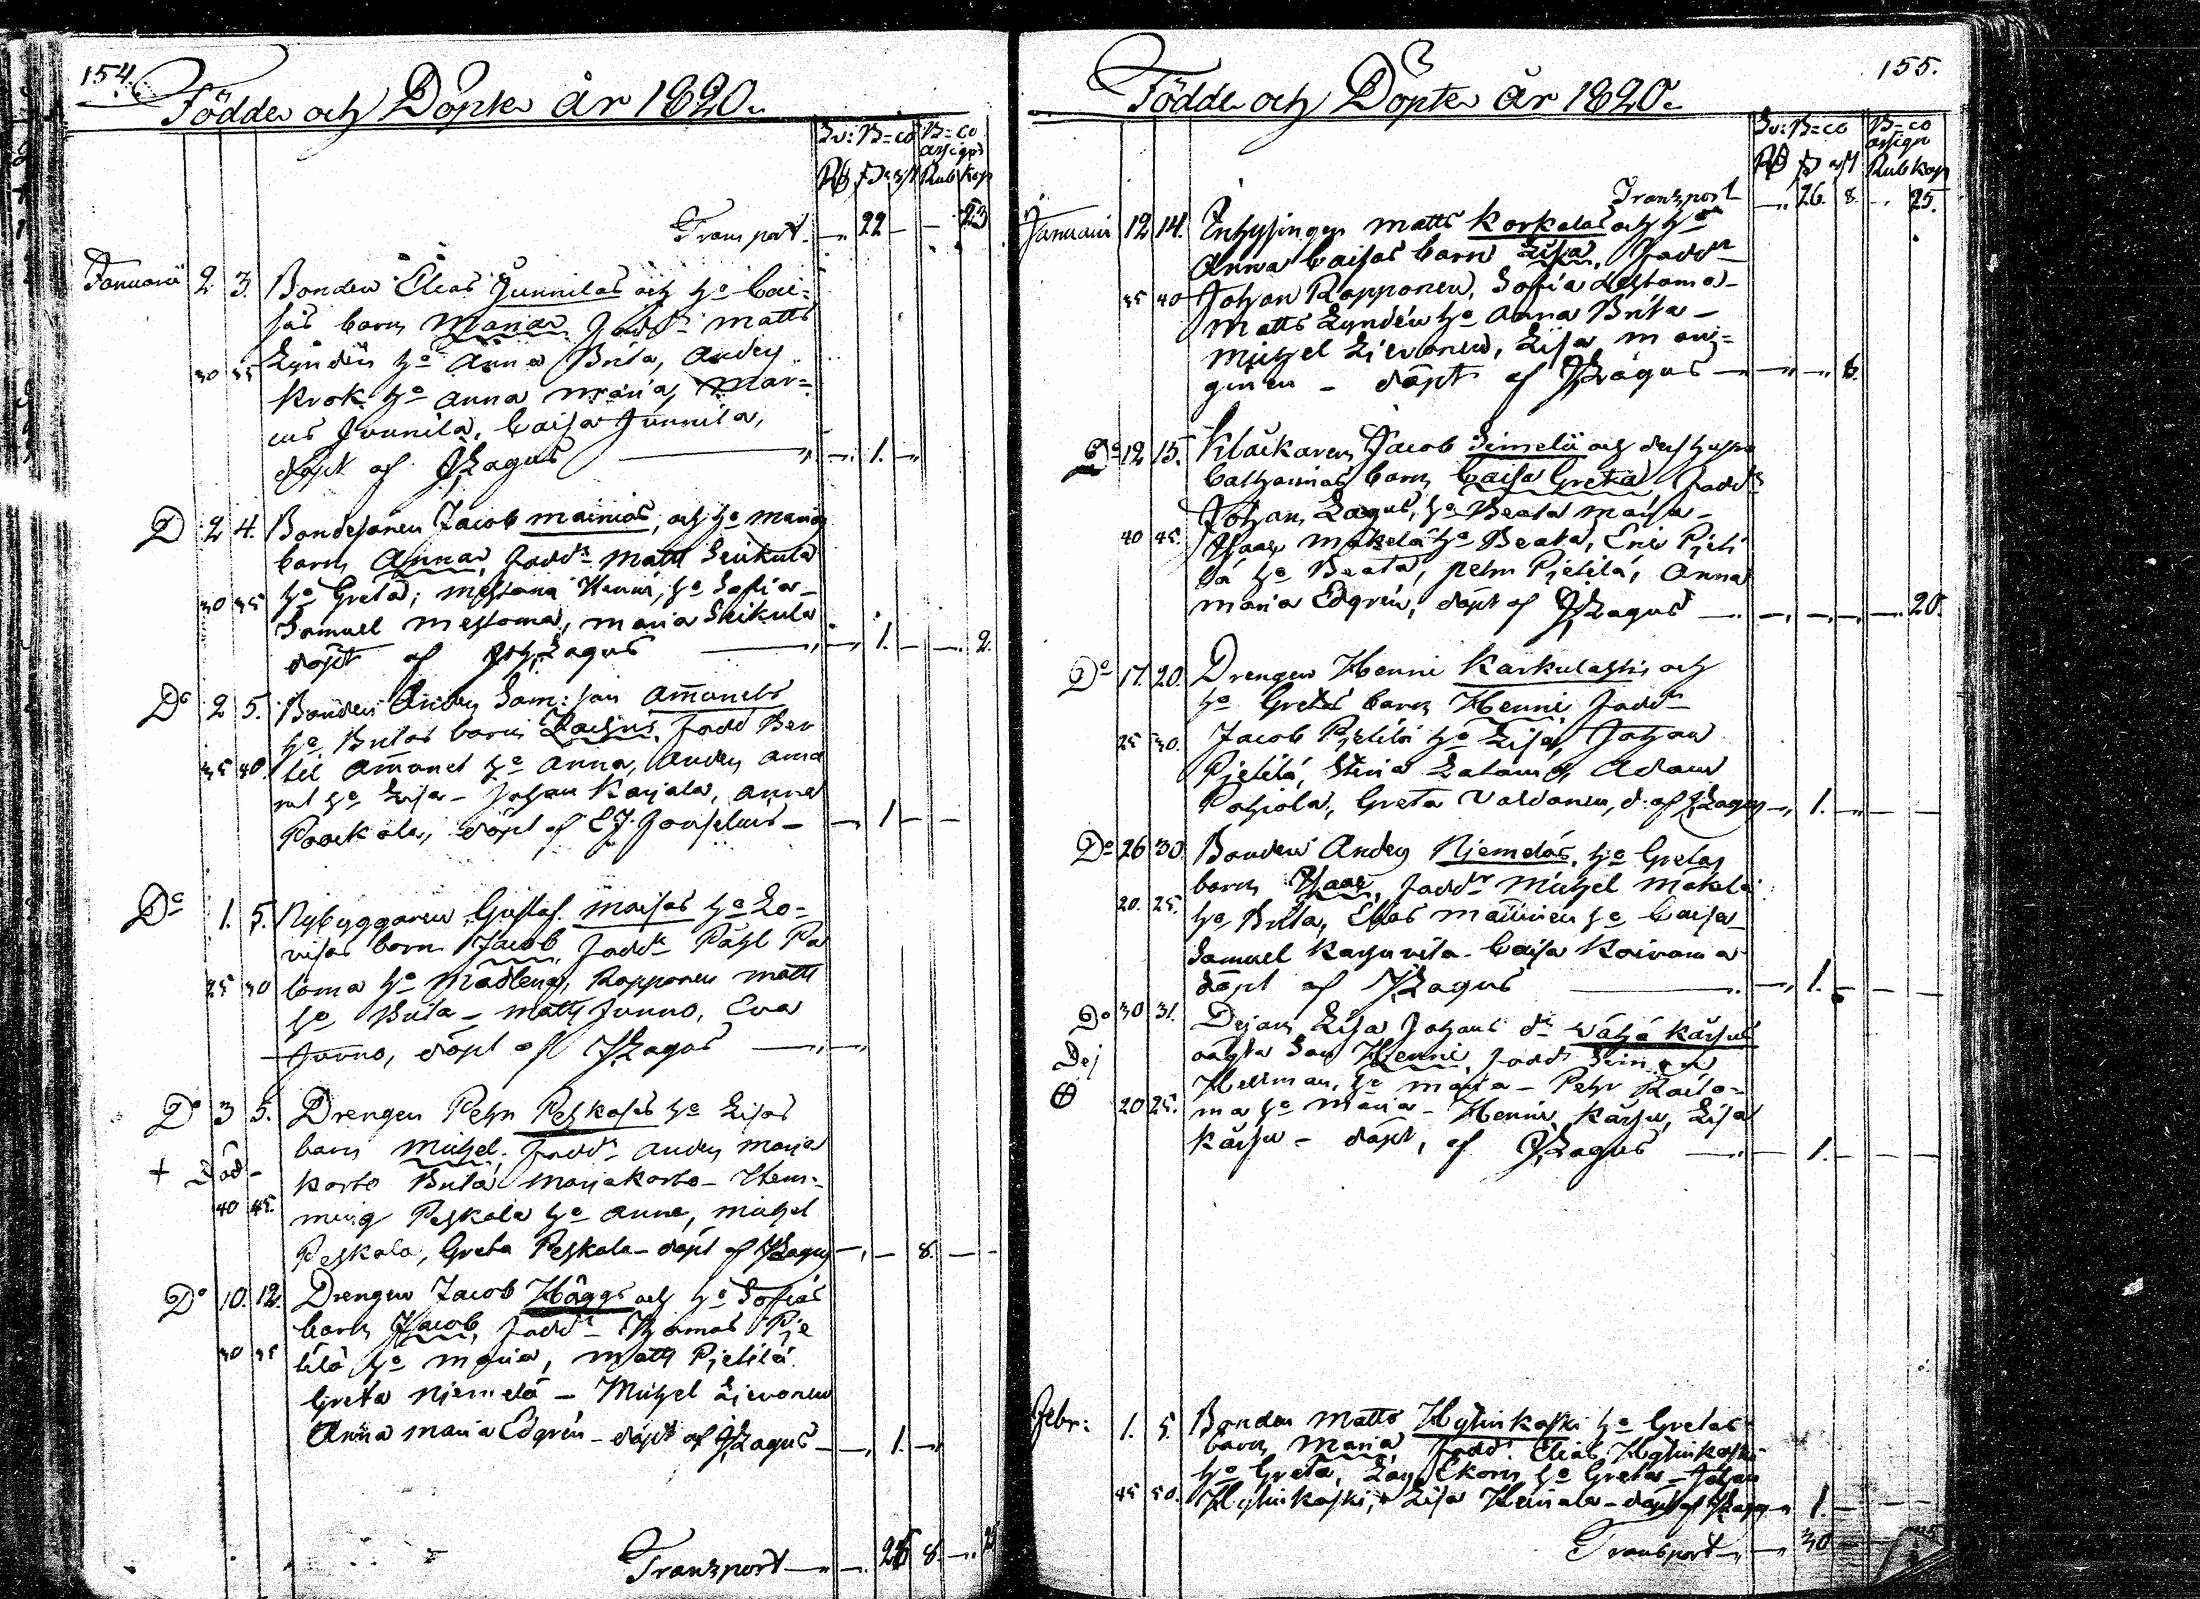 154.
Födde och Döpte år 1820.
Sv: B=co B=co
assign
Rub Kop
Transport. 22 23
Januarii 2 3. Bonden Elias Junnilas och h:o Cai=
sas barn Maria, fadd:r Matts
30 35 Lyndén h:o Anna Brita, Anders
Krok h:o Anna Maria, Mar=
cus Junnila, Caisa Junnila,
döpt af JZagus 1.
D 2 4. Bondesonen Jacob Mainios, och h:o Maria
barn Anna, fadd:r Matts Seikula
30 35 h:o Greta; Henric, h:o Sofia
Samuel Mestoma, Maria Seikula
döpt af Joh. Zagus 1. 2.
D:o 2 5. Bonden Anders Sam: son Amonets
h:o Britas barn fadd Ber
35 40 til Amonet h:o Anna, Anders Amo
net h:o Lisa - Johan Karjala, Anna
döpt af 1
D:o 1. 5. Nybyggaren Gustaf Maisas h:o Lo=
visas barn Jacob, fadd:r Påhl Pa
25 30 loma h:o Madlena, Rapponen Matts
h:o Brita - Matts Junno, Eva
Junno, döpt af JZagus
D:o 3 5. Drengen Pehr Peskalas h:o Lisas
barn Michel, fadd:r Anders Marja
+ Död - korbo Brita Marjakorbo - Hem=
40 45. ming Peskala h:o Anna, Michel
Peskala, Greta Peskala - döpt af JZagus 8.
D:o 10. 12. Drengen Jacob Häggs och h:o Sofias
barn Jacob, fadd:r Thomas Pje
30 35 tilä h:o Maria, Matts Pjetilä
Greta Niemelä - Michel Lievonen
Anna Maria Edgrén - döpt af JZagus 1.
Transport 26 8 25
155.
Födde och Döpte år 1820.
Sv: B=co B=co
assign
Rub Kop
Transport 26. 8. 25.
Januarii 12 14. Inhysingen Matts Korkalas och h:o
Anna Caisas barn Lisa, fadd:r
35 40 Johan Rapponen, Sofia
Matts Lyndén h:o Anna Brita -
Michel Lievonen, Lisa
- döpt af JZagus 8.
D:o 12 15. Klåckaren Jacob Simelii och dess hustru
Catharinas barn Caisa Greta, fadd:r
Johan Zagus, h:o Beata Maria -
40 45. Isaac Mäkelä h:o Beata, Eric Pjeti
lä h:o Beata, Petter Pjetilä, Anna
Maria Edgrén, döpt af JZagus 20.
D:o 17. 20. Drengen Henric Karkulahti och
h:o Gretas barn Henric fadd:r
25 30. Jacob Pjetilä h:o Lisa, Johan
Pjetilä, Stina Adam
Pohjola, Greta Valdonen, d. af JZagus 1.
D:o 26 30. Bonden Anders Niemeläs, h:o Gretas
barn Isaac, fadd:r Michel Mäkelä
20. 25. h:o Brita, Elias Mattinen h:o Caisa
Samuel Caisa Koivoma
döpt af JZagus 1.
D:o 30 31. Dejan Lisa Johans d:r Vähä Karjus
Dej oägta Son Henric, fadd:r
⊕ Hellman, h:o Maria - Pehr Raito=
20 25. ma h:o Maria - Henric Karju, Lisa
Karju - döpt, af JZagus 1.
Febr: 1. 5. Bonden Matts Hyljinkoski h:o Gretas
barn Maria, fadd:r Elias Hyljinkoski
h:o Greta, Ekorn h:o Greta - Johan
45 50. Hyljinkoski, Lisa Heinala - döpt af JZagus 1.
Transport 30